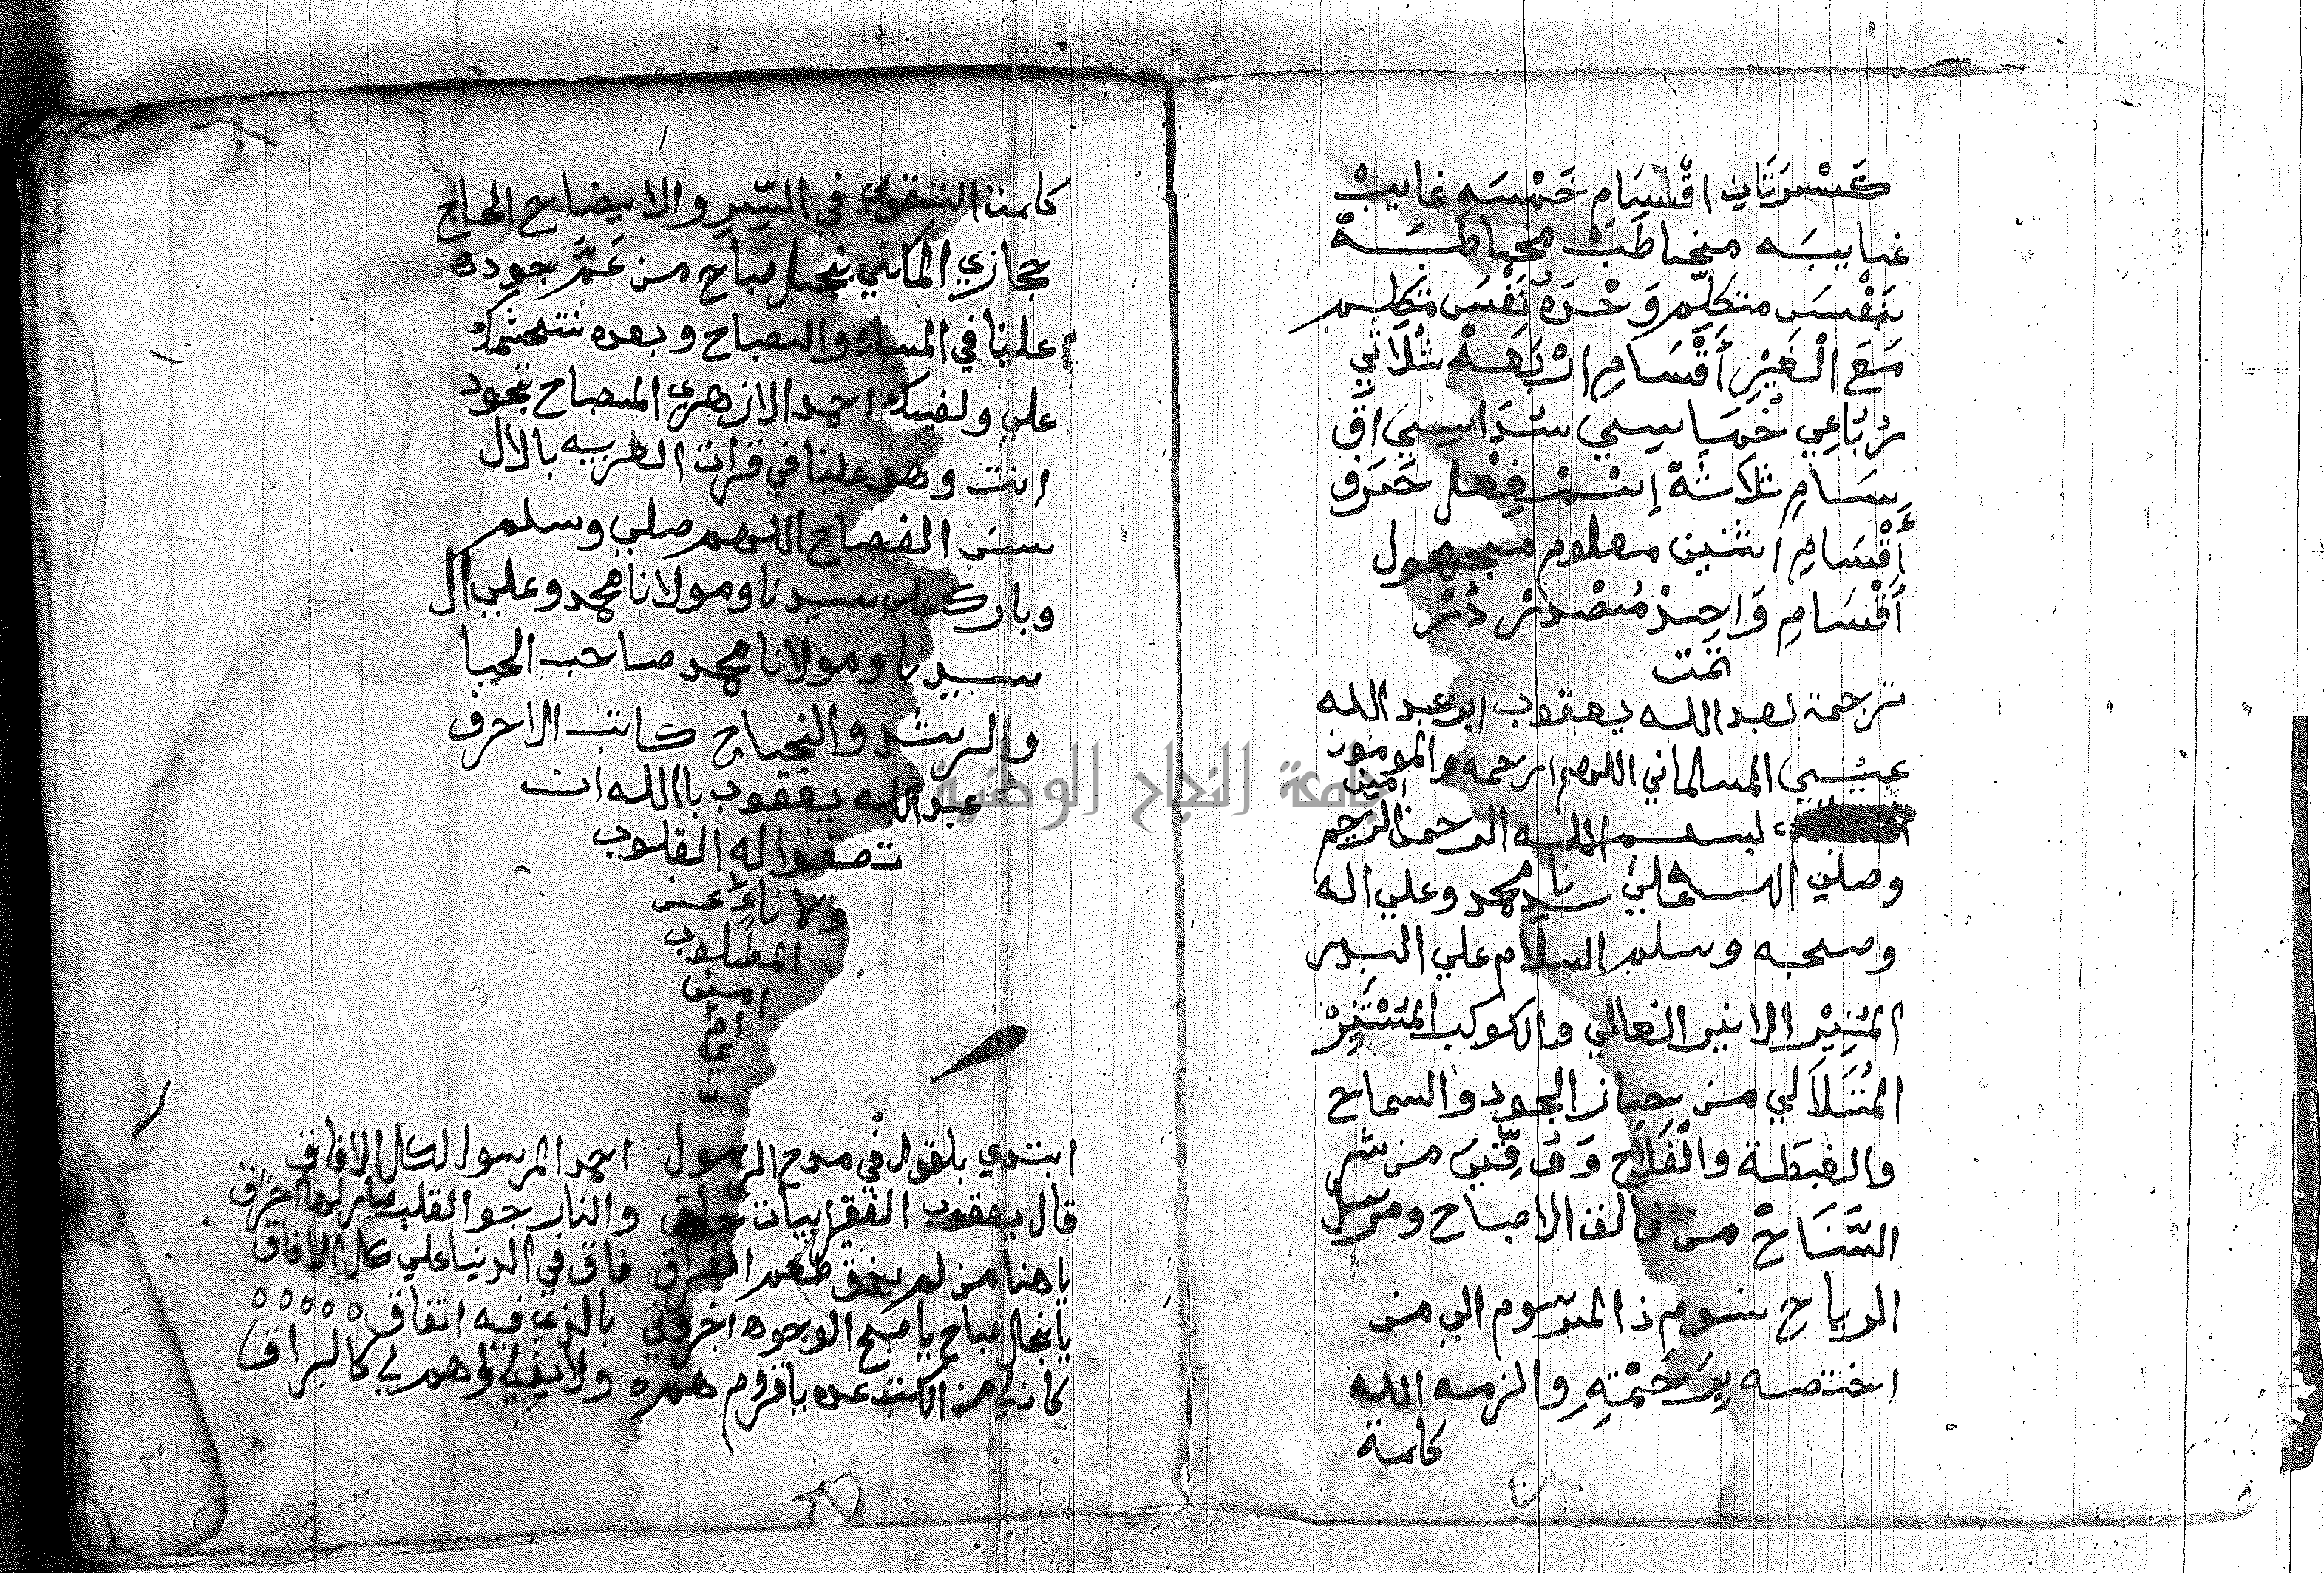 كسرتان اقسام خمسه غايب
غايبه مخاطب مخاطبة
نفس متكلم وحده نفس متكلم
مع الغير أقسام اربعة ثلاثي
رباعي خماسي سداسي اق
سام ثلاثة إسم فعل حرف
أقسام اثنين معلوم مجهول
أقسام واحد مصدر
تمت
ترجمة لعبد الله يعقوب ابن عبد الله
عيسي المسلماني اللهم ارحمه والمومون
امين
بسم الله الرحمن الرحيم
وصلي الله علي سيدنا محمد وعلي اله
وصحبه وسلم السلام علي البدر
المنير الانير العالي والكوكب المستنير
المتلالي من حاز الجود والسماح
والغبطة والفلاح وقني من شر
من فالق الاصباح ومرسل
الرياح المرسوم الي من
اختصه برحمته والزمه الله
كلمة
كلمت التقوي في السر والايضاح الحاج
حجازي المكني بنجل صباح من عم جوده
علينا في المساء والصباح وبعده
علي احمد الازهري المصباح بجود
انت وهو علينا في قرات العربيه بالال
سن الفصاح اللهم صلي وسلم
وبارك علي سيدنا ومولانا محمد وعلي ال
سيدنا ومولانا محمد صاحب الحيا
والرشد والنجاح كاتب الاحرف
عبد الله يعقوب باالله ان
تصفوا له القلوب
ولا ناء عن
المطلوب
امين
ابتدي بلقول في مدح الرسول احمد المرسول لكل الافاق
قال يعقوب الفقر ابيات والنار جو القلب
يا هنا من لم يذق طعم الفراق فاق في الدنيا علي كل الافاق
يا نجل صباح يا صبح الوجوه اخبروني بالذي فيه اتفاق
من الكتب عده كالبراق